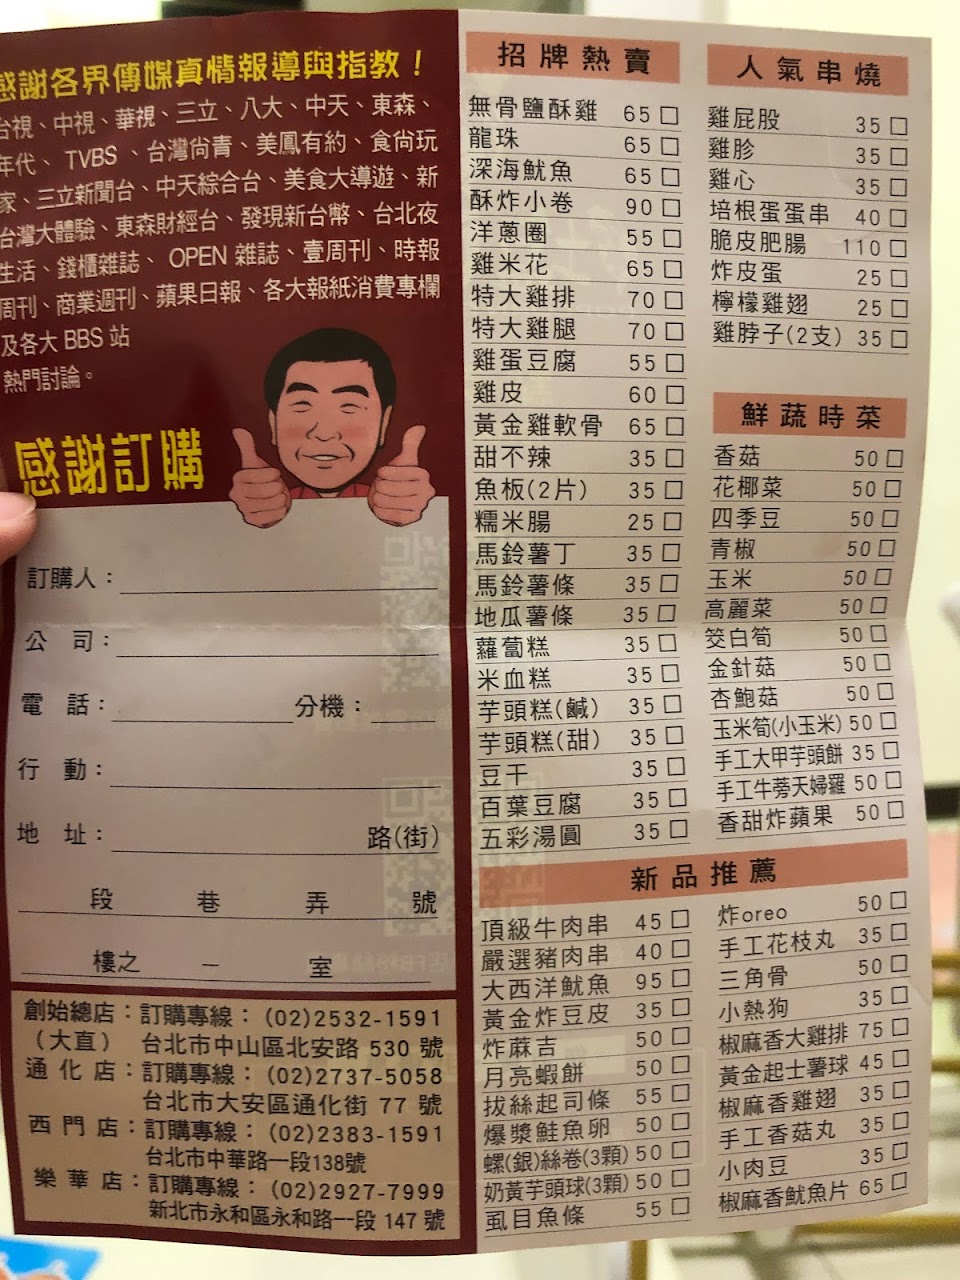 感謝各界傳媒真情報導與指教！
台視、中視、華視、三立、八大、中天、東森、
年代、TVBS、台灣尚青、美鳳有約、食尚玩
家、三立新聞台、中天綜合台、美食大導遊、新
台灣大體驗、東森財經台、發現新台幣、台北夜
生活、錢櫃雜誌、OPEN 雜誌、壹周刊、時報
周刊、商業週刊、蘋果日報、各大報紙消費專欄
及各大 BBS 站
熱門討論。
感謝訂購
訂購人：
公 司：
電 話： 分機：
行 動：
地 址： 路(街)
段 巷 弄 號
樓之 — 室
創始總店：訂購專線：(02)2532-1591
（大直） 台北市中山區北安路 530 號
通化店：訂購專線：(02)2737-5058
台北市大安區通化街 77 號
西門店：訂購專線：(02)2383-1591
台北市中華路一段138號
樂華店：訂購專線：(02)2927-7999
新北市永和區永和路一段 147 號
招牌熱賣
無骨鹽酥雞 65 □
龍珠 65 □
深海魷魚 65 □
酥炸小卷 90 □
洋蔥圈 55 □
雞米花 65 □
特大雞排 70 □
特大雞腿 70 □
雞蛋豆腐 55 □
雞皮 60 □
黃金雞軟骨 65 □
甜不辣 35 □
魚板(2片) 35 □
糯米腸 25 □
馬鈴薯丁 35 □
馬鈴薯條 35 □
地瓜薯條 35 □
蘿蔔糕 35 □
米血糕 35 □
芋頭糕(鹹) 35 □
芋頭糕(甜) 35 □
豆干 35 □
百葉豆腐 35 □
五彩湯圓 35 □
人氣串燒
雞屁股 35 □
雞胗 35 □
雞心 35 □
培根蛋蛋串 40 □
脆皮肥腸 110 □
炸皮蛋 25 □
檸檬雞翅 25 □
雞脖子(2支) 35 □
鮮蔬時菜
香菇 50 □
花椰菜 50 □
四季豆 50 □
青椒 50 □
玉米 50 □
高麗菜 50 □
筊白筍 50 □
金針菇 50 □
杏鮑菇 50 □
玉米筍(小玉米) 50 □
手工大甲芋頭餅 35 □
手工牛蒡天婦羅 50 □
香甜炸蘋果 50 □
新品推薦
頂級牛肉串 45 □
嚴選豬肉串 40 □
大西洋魷魚 95 □
黃金炸豆皮 35 □
炸蔴吉 50 □
月亮蝦餅 50 □
拔絲起司條 55 □
爆漿鮭魚卵 50 □
螺(銀)絲卷(3顆) 50 □
奶黃芋頭球(3顆) 50 □
虱目魚條 55 □
炸oreo 50 □
手工花枝丸 35 □
三角骨 50 □
小熱狗 35 □
椒麻香大雞排 75 □
黃金起士薯球 45 □
椒麻香雞翅 35 □
手工香菇丸 35 □
小肉豆 35 □
椒麻香魷魚片 65 □